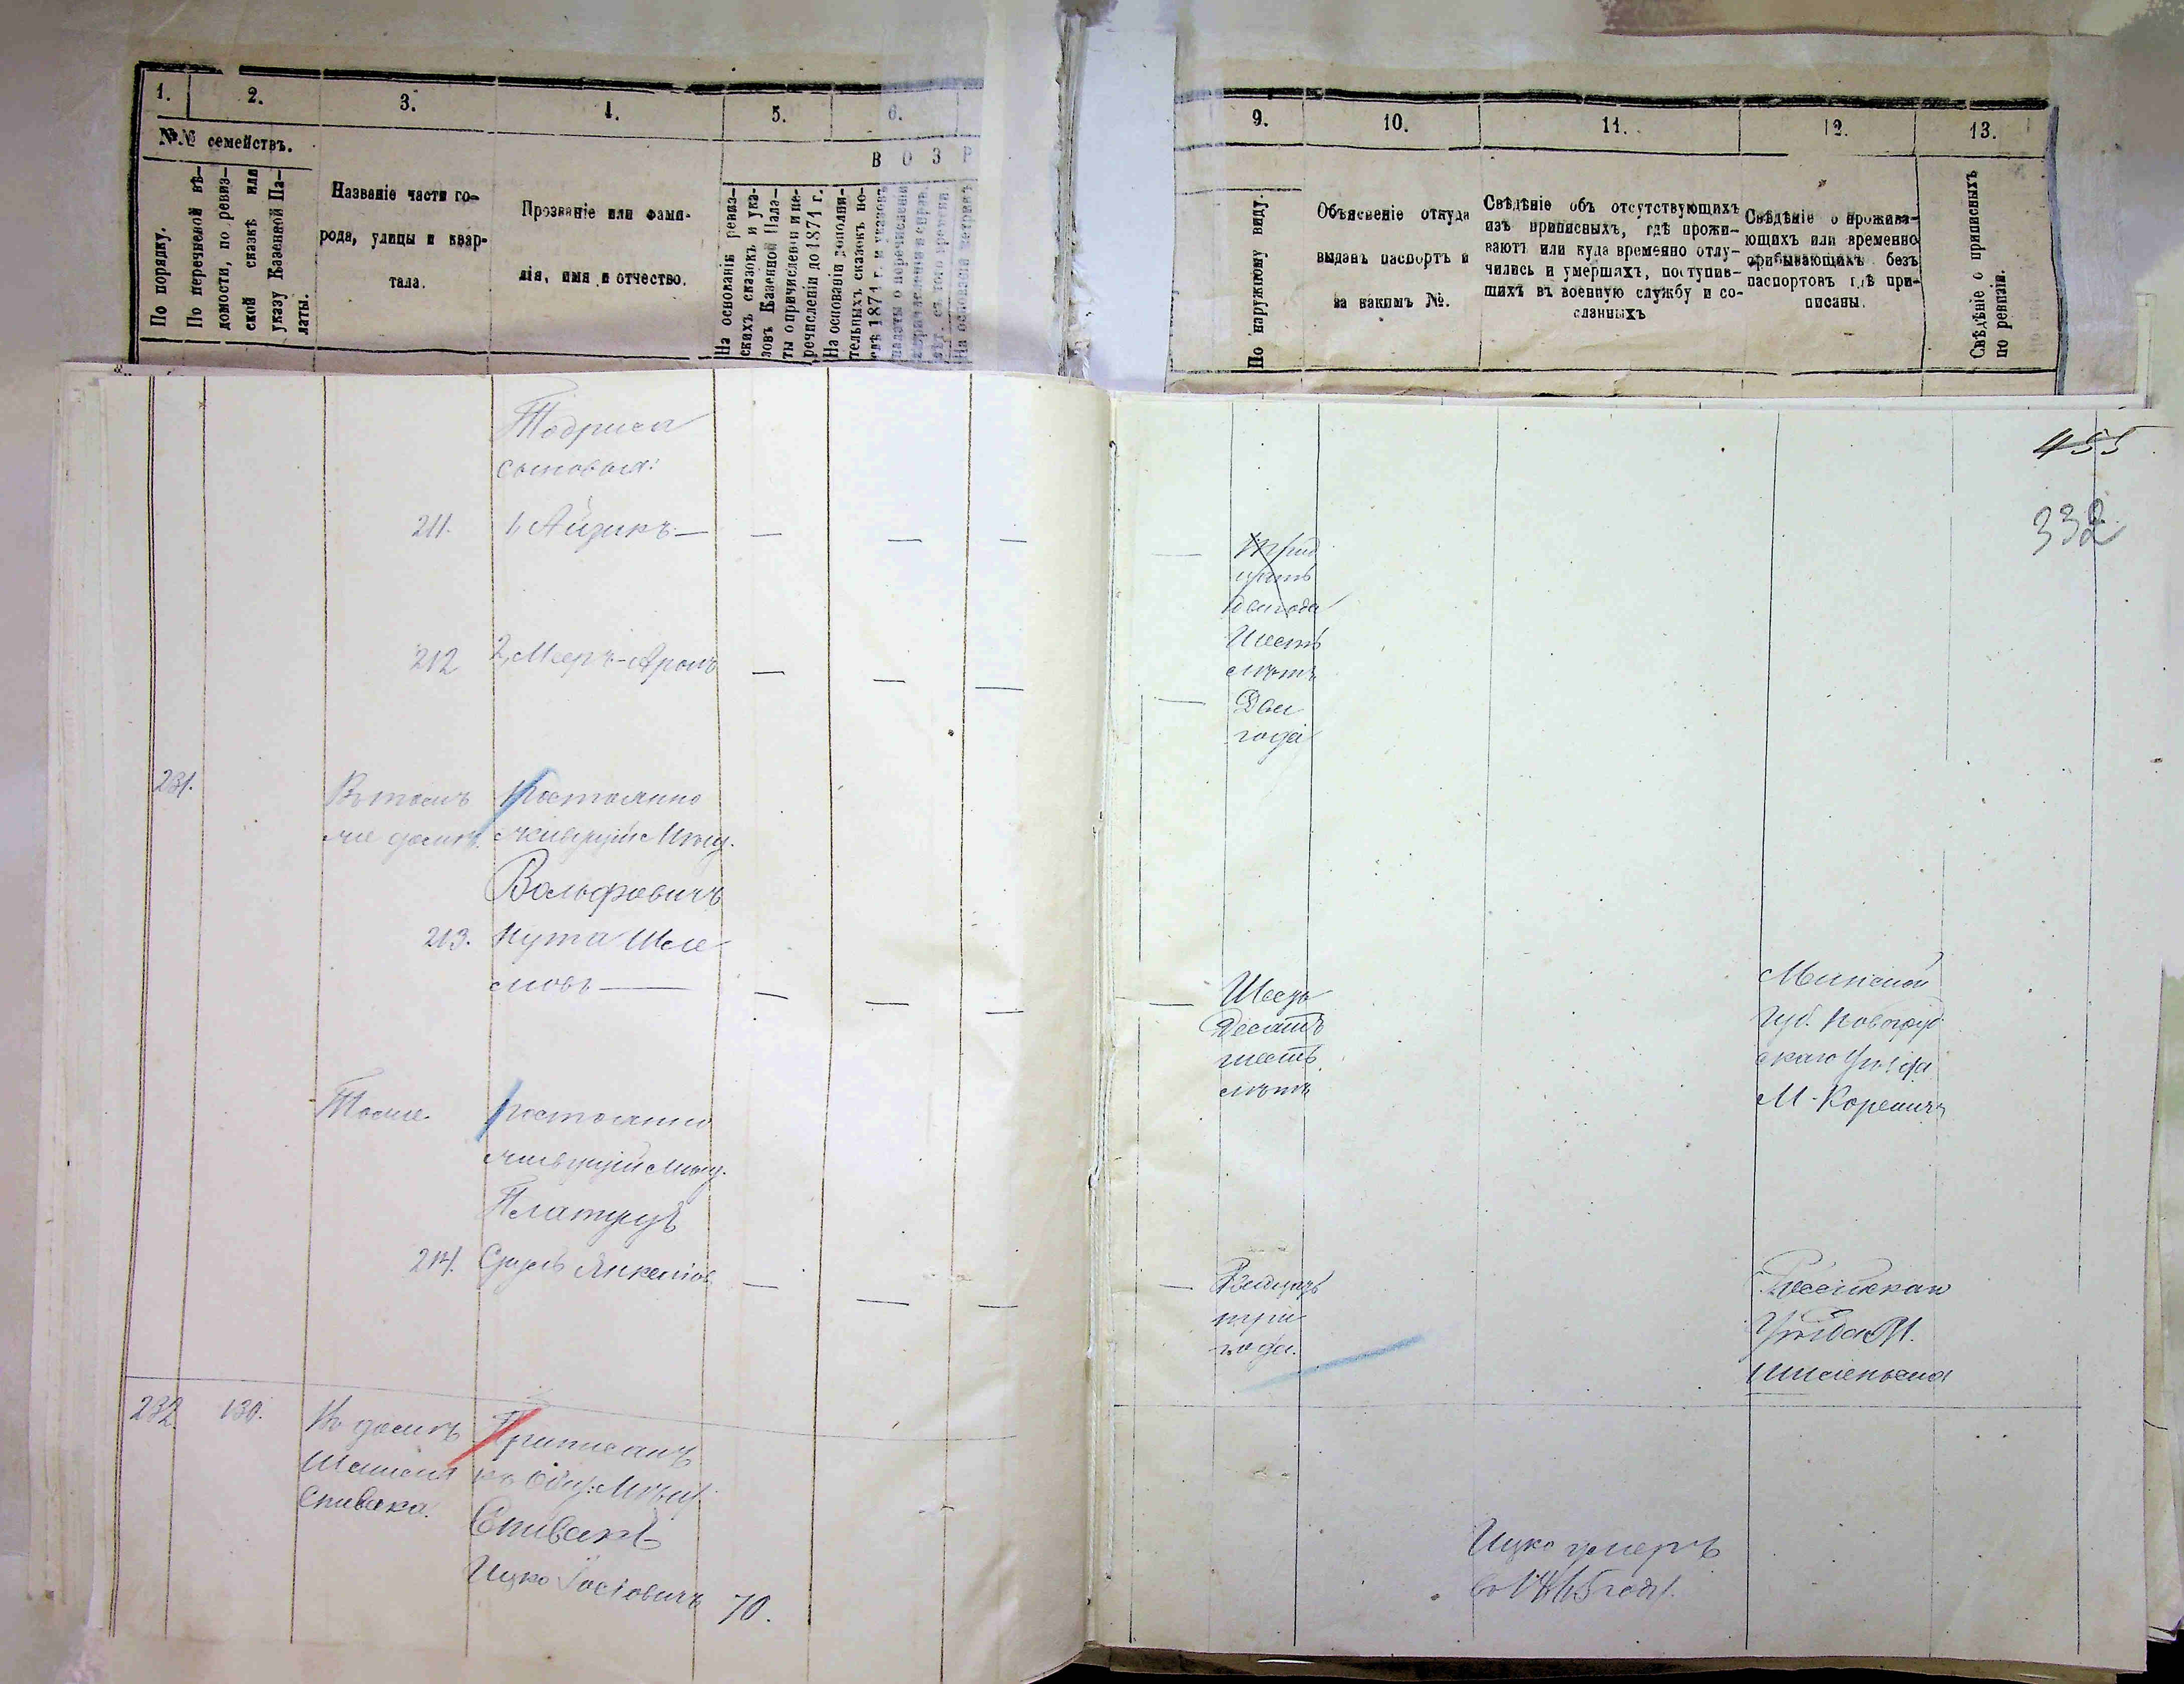 1.
2.
3.
4.
5.
6.
№№ семействъ.
В О З Р
По порядку.
По перечневой вѣ-
домости, по ревиз-
ской сказкѣ или
указу Казенной Па-
латы.
Названіе части го-
рода, улицы и квар-
тала.
Прозваніе или фами-
лія, имя и отчество.
На основаніи ревиз-
скихъ сказокъ и ука-
зовъ Казенной Пала-
ты о причисленіи и пе-
речисленіи до 1874 г.
На основаніи дополни-
тельныхъ сказокъ по-
слѣ 1874 г. и указовъ
палаты о перечисленіи
9.
10.
11.
12.
13.
По наружному виду.
Объясненіе откуда
выданъ паспортъ и
за какимъ №.
Свѣдѣніе объ отсутствующихъ
изъ приписныхъ, гдѣ прожи-
ваютъ или куда временно отлу-
чились и умершихъ, поступив-
шихъ въ военную службу и со-
сланныхъ
Свѣдѣніе о прожива-
ющихъ или временно
прибывающихъ безъ
паспортовъ гдѣ при-
писаны.
Свѣдѣніе о приписныхъ
по ревизіи.
455
332
Тодриса
сыновья:
211. 1, Айзикъ —
Трид
цать
два года
Шесть
лѣтъ
212 2, Мееръ-Аронъ
Два
года
231.
Въ томъ Постоянно
же домѣ живущій Мѣщ.
Вольфовичъ
213. Нута Шле
мовъ —
Шезь
десятъ
шесть
лѣтъ
Минской
Губ. Новогруд
скаго Уѣзда
М. Кореличъ
Тоже Постоянно
живущій Мѣщ.
214. Сруль Янкелiов
три
года.
Уѣзда М.
232. 130. Въ домѣ Приписанъ
къ Общ: Мѣщ.
Спивака. Спивакъ
Ицко Іосіовичъ 70.
Ицко умеръ